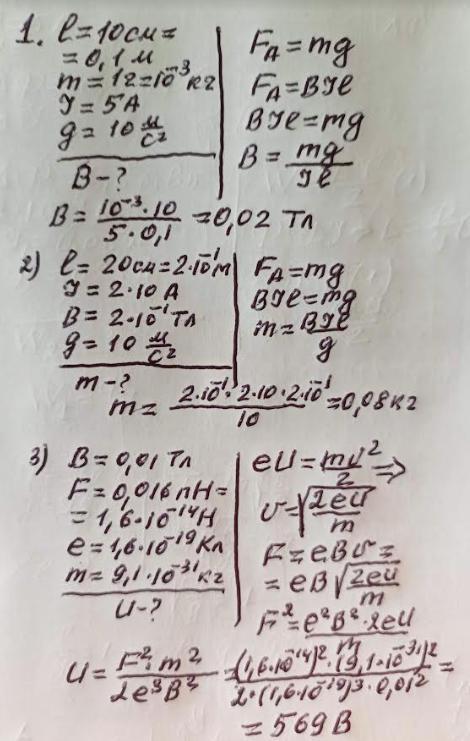 1. l=10см=
=0,1 м
m=1г=10⁻³ кг
I=5А
g=10 м/с²
B-?
F_A=mg
F_A=BIl
BIl=mg
B=mg/Il
B=10⁻³·10/5·0,1=0,02 Тл
2) l=20см=2·10⁻¹м
I=2·10 А
B=2·10⁻¹Тл
g=10 м/с²
m-?
F_A=mg
BIl=mg
m=BIl/g
m=2·10⁻¹·2·10·2·10⁻¹/10=0,08 кг
3) B=0,01 Тл
F=0,016 пН=
=1,6·10⁻¹⁴Н
e=1,6·10⁻¹⁹Кл
m=9,1·10⁻³¹кг
U-?
eU=mv²/2⇒
v=√2eU/m
F=eBv=
=eB√2eU/m
F²=e²B²·2eU/m
U=F²·m²/2e³B²=(1,6·10⁻¹⁴)²·(9,1·10⁻³¹)²/2·(1,6·10⁻¹⁹)³·0,01²=
=569 В